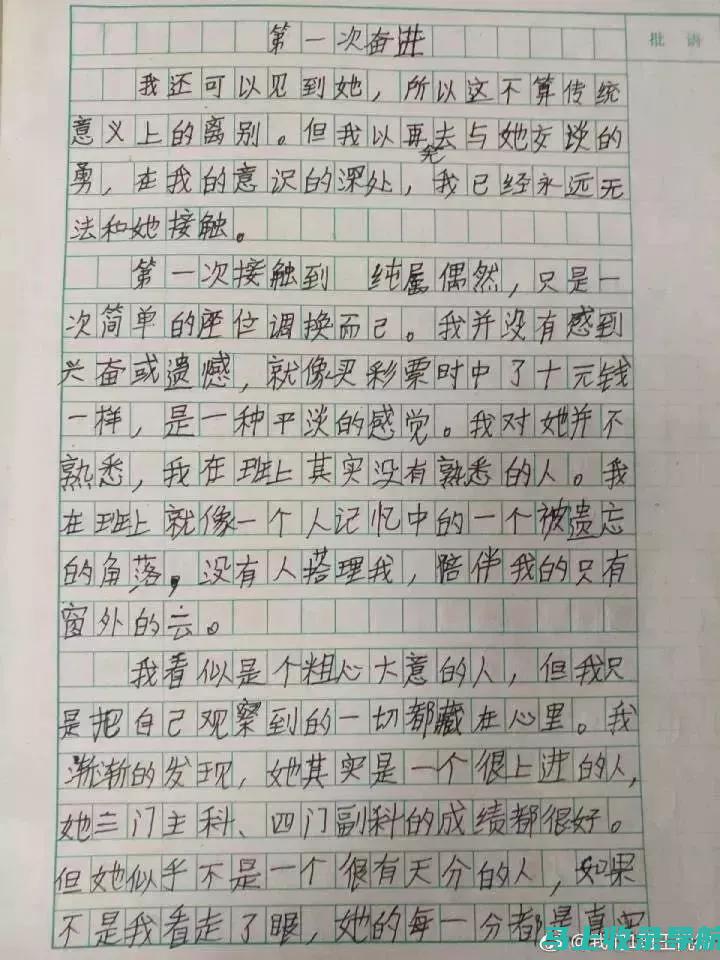 第一次奋进
批语
我还可以见到她，所以这不算传统
意义上的离别。但我以再去与她交谈的
勇，在我的意识的深处，我已经永远无
法和她接触。
第一次接触到 纯属偶然，只是一
次简单的座位调换而已。我并没有感到
兴奋或遗憾，就像买彩票时中了十元钱
一样，是一种平淡的感觉。我对她并不
熟悉，我在班上其实没有熟悉的人。我
在班上就像一个人记忆中的一个被遗忘
的角落，没有人搭理我，陪伴我的只有
窗外的云。
我看似是个粗心大意的人，但我只
是把自己观察到的一切都藏在心里。我
渐渐的发现，她其实是一个很上进的人，
她三门主科、四门副科的成绩都很好。
但她似乎不是一个很有天分的人，如果
不是我看走了眼，她的每一分都是真实
马上收录导航